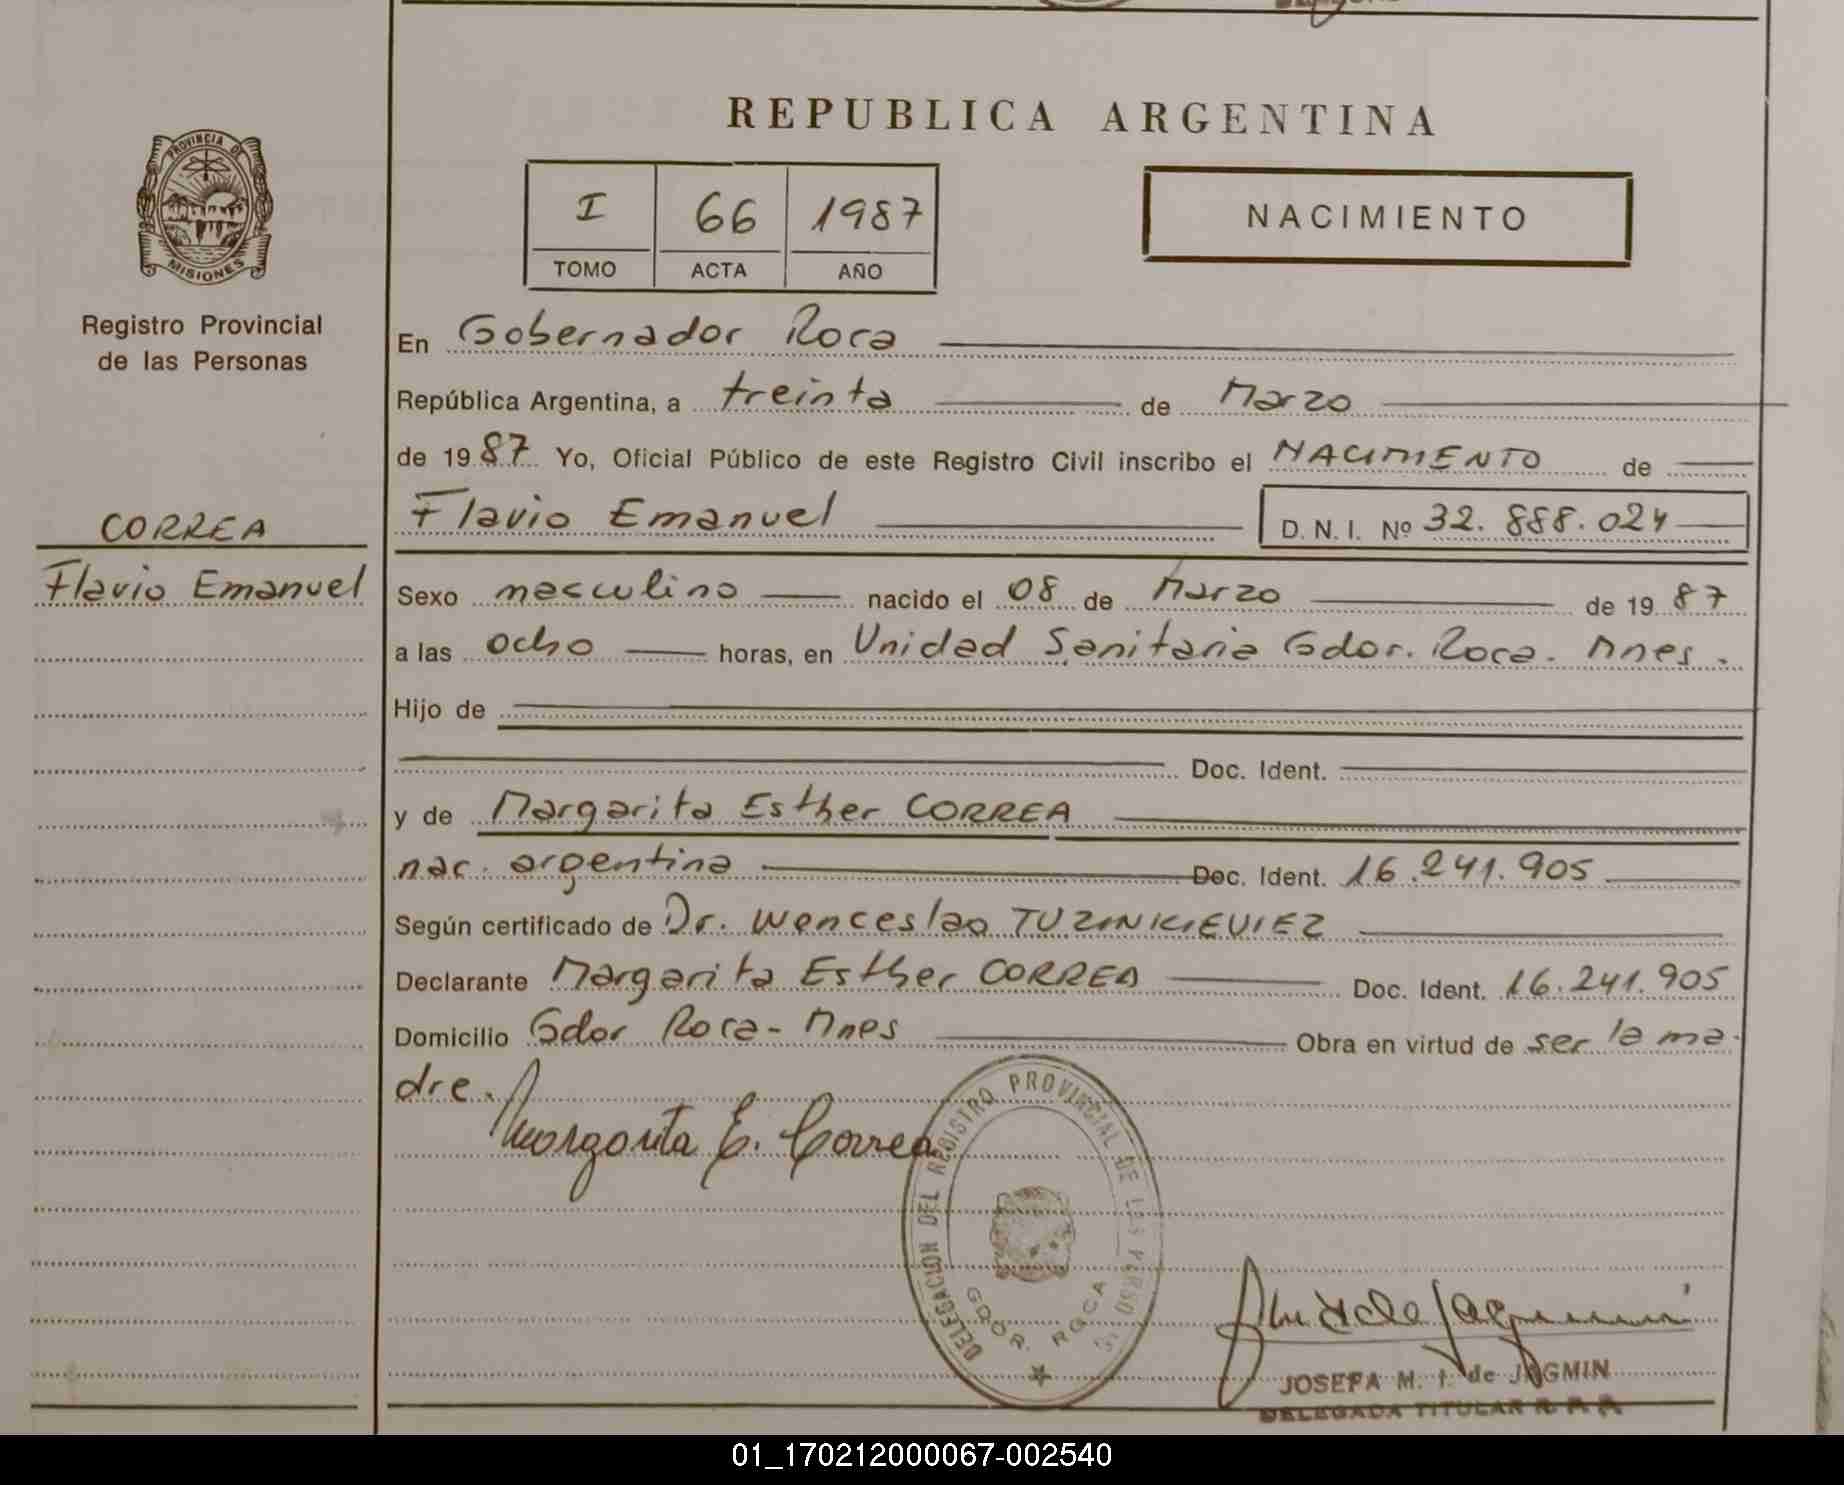 REPUBLICA ARGENTINA
PROVINCIA DE
MISIONES
Registro Provincial
de las Personas
I 66 1987
TOMO ACTA AÑO
NACIMIENTO
En Gobernador Roca
República Argentina, a treinta de Marzo
de 1987 Yo, Oficial Público de este Registro Civil inscribo el NACIMIENTO de
CORREA
Flavio Emanuel
Flavio Emanuel D. N. I. Nº 32.888.024
Sexo masculino nacido el 08 de Marzo de 1987
a las ocho horas, en Unidad Sanitaria Gdor. Roca. Mnes.
Hijo de
Doc. Ident.
y de Margarita Esther CORREA
nac. argentina Doc. Ident. 16.241.905
Según certificado de Dr. Wenceslao TUZINKIEVIEZ
Declarante Margarita Esther CORREA Doc. Ident. 16.241.905
Domicilio Gdor Roca - Mnes Obra en virtud de ser la ma-
dre.
Margarita E. Correa
DELEGACION DEL REGISTRO PROVINCIAL DE LAS PERSO
GDOR. ROCA
JOSEFA M. de JAGMIN
DELEGADA TITULAR
01_170212000067-002540